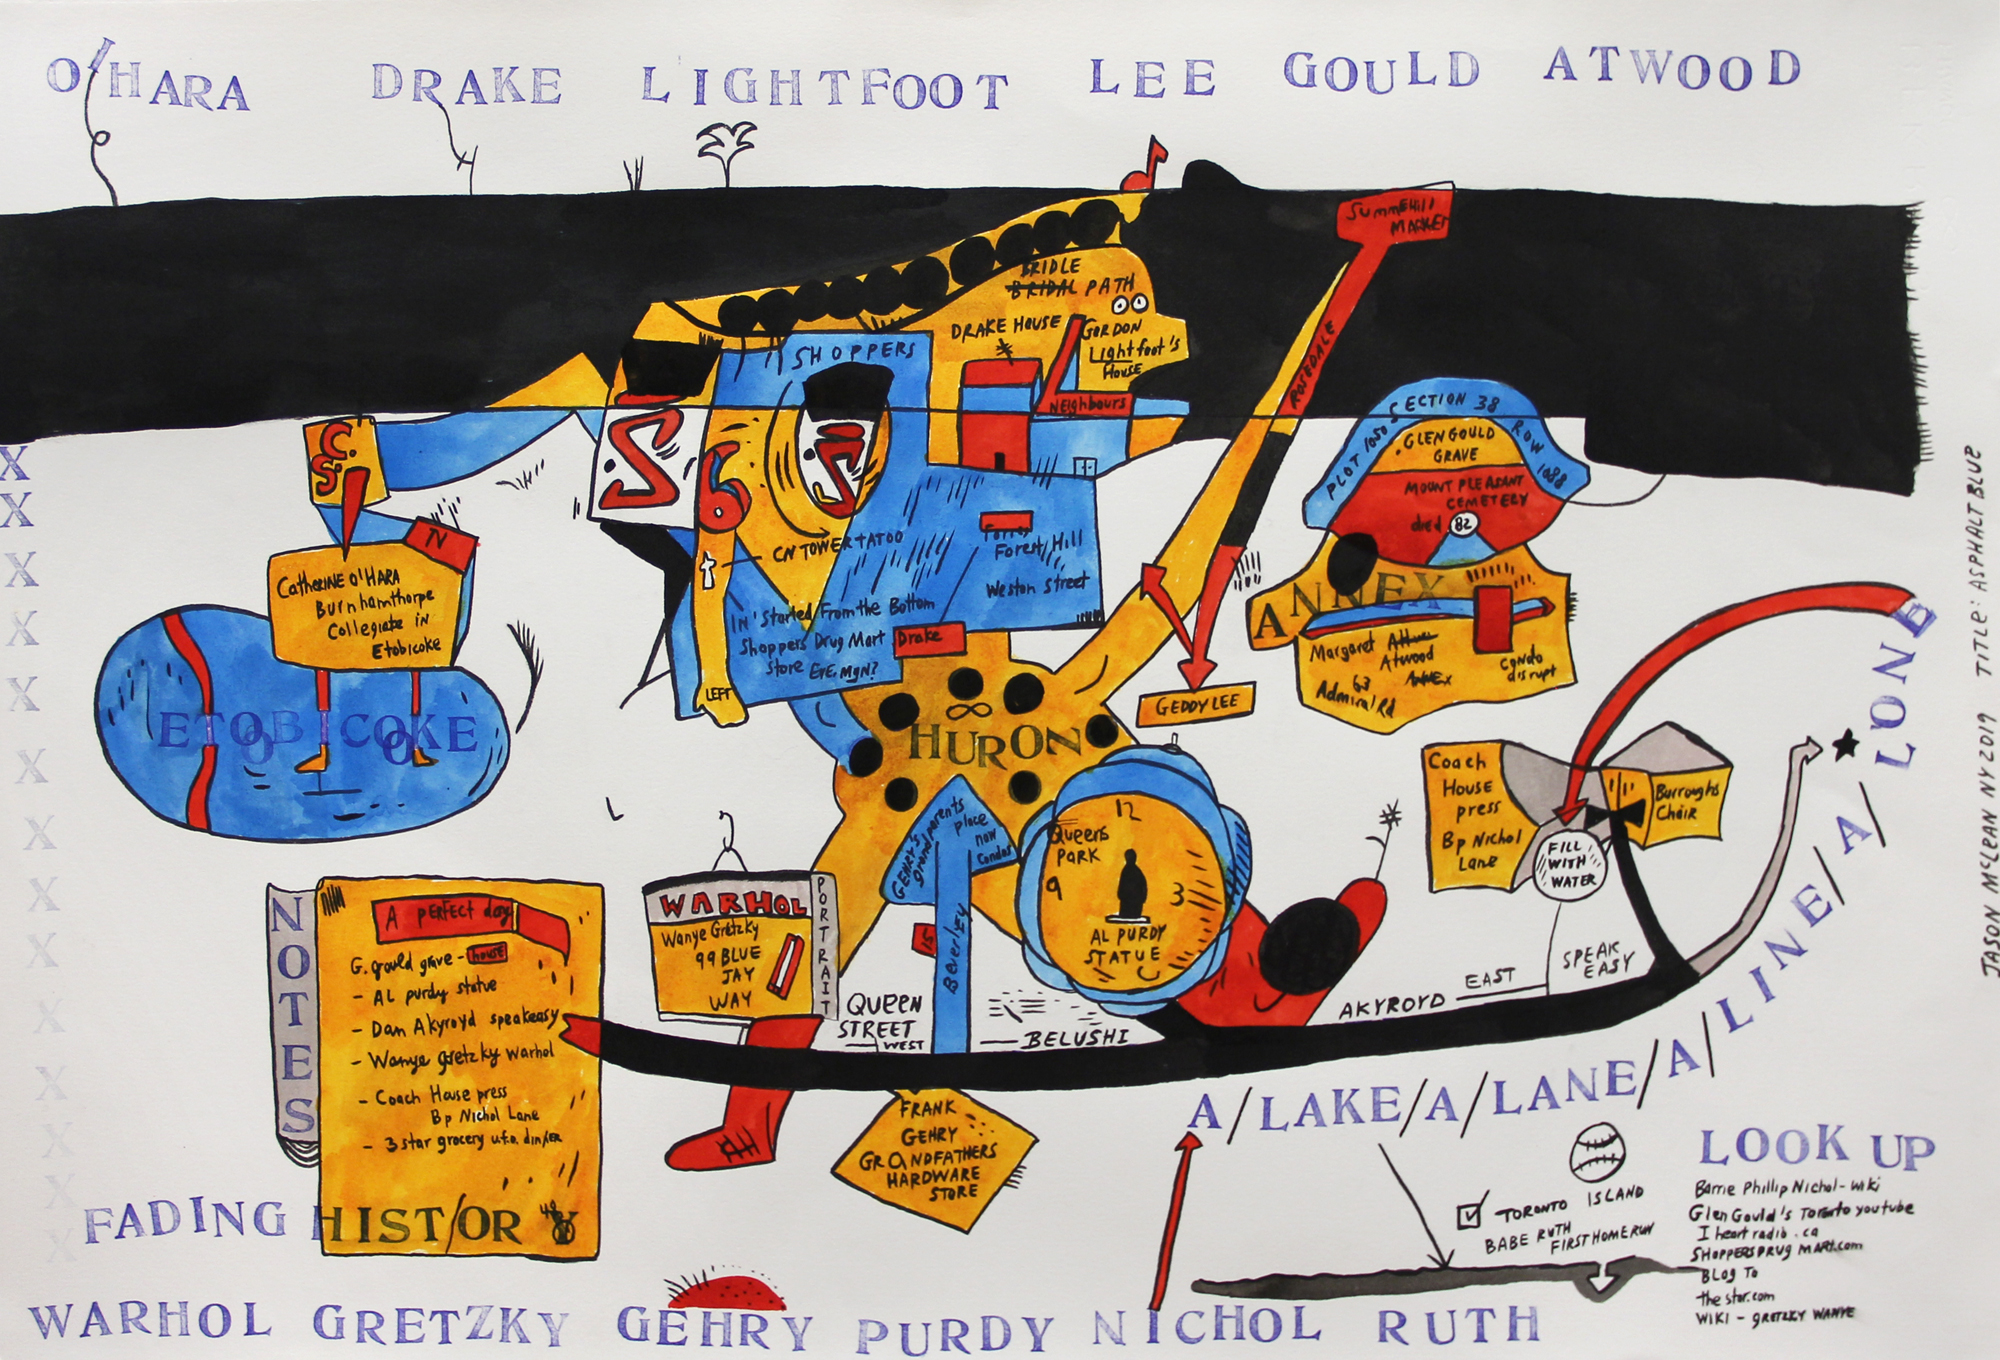 O'HARA DRAKE LIGHTFOOT LEE GOULD ATWOOD
SUMMEHILL
MARKET
ROSEDALE
GEDDY LEE
BRIDLE
BRIDAL PATH
DRAKE HOUSE
GORDON
Lightfoot's
House
NEIGHBOURS
SHOPPERS
S.C.
6
CN TOWER TATOO
Forest Hill
Weston Street
IN 'Started From the Bottom
Shoppers Drug Mart
Store EVE. MGN?
Drake
LEFT
TV
CATHERINE O'HARA
Burnhamthorpe
Collegiate in
Etobicoke
ETOBICOKE
PLOT 1050 SECTION 38 ROW 1088
GLEN GOULD
GRAVE
MOUNT PLEASANT
CEMETERY
died 82
ANNEX
Margaret
Atwood
63
Admiral Rd
condo
disrupt
X
X
X
X
X
X
X
X
X
X
X
X
X
X
∞
HURON
GEHRY'S
grandparents
place
now
condos
Beverley
15
12
QUEENS
PARK
9
3
AL PURDY
STATUE
Coach
House
press
Bp Nichol
Lane
Burroughs
Chair
FILL
WITH
WATER
SPEAK
EASY
EAST
AKYROYD
BELUSHI
QUEEN
STREET
WEST
WARHOL
PORTRAIT
Wanye Gretzky
99 BLUE
JAY
WAY
NOTES
A PERFECT day
G. grould grave - house
- AL purdy statue
- Dan Akyroyd speakeasy
- Wanye gretzky warhol
- Coach House press
Bp Nichol Lane
- 3 star grocery u.f.o. dinner
FADING HIST/ORY
FRANK
GEHRY
GRANDFATHERS
HARDWARE
STORE
A/LAKE/A/LANE/A/LINE/A/LONE
TORONTO ISLAND
BABE RUTH
FIRST HOME RUN
LOOK UP
Barrie Phillip Nichol - wiki
Glen Gould's Toronto youtube
I heart radio.ca
SHOPPERSDRUG MART.com
BLOG TO
the star.com
WIKI - GRETZKY WANYE
WARHOL GRETZKY GEHRY PURDY NICHOL RUTH
JASON MCLEAN NY 2019 TITLE: ASPHALT BLUE